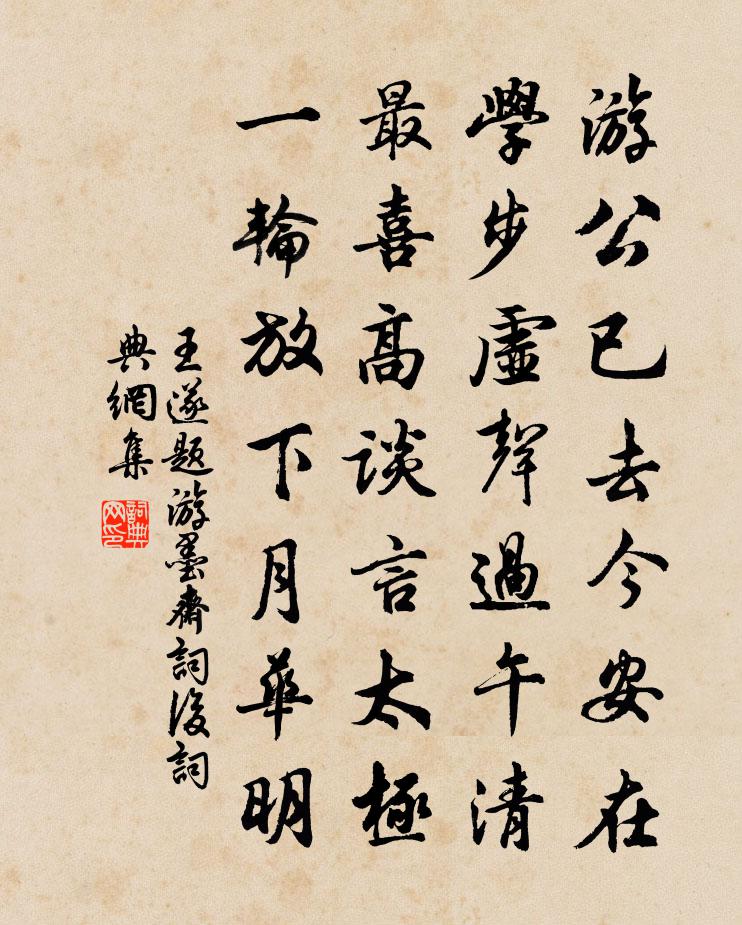 游公已去今安在
學步虛聲過午清
最喜高談言太極
一輪放下月華明
王遂題游墨齋詞後詞
典網集
詞典網印